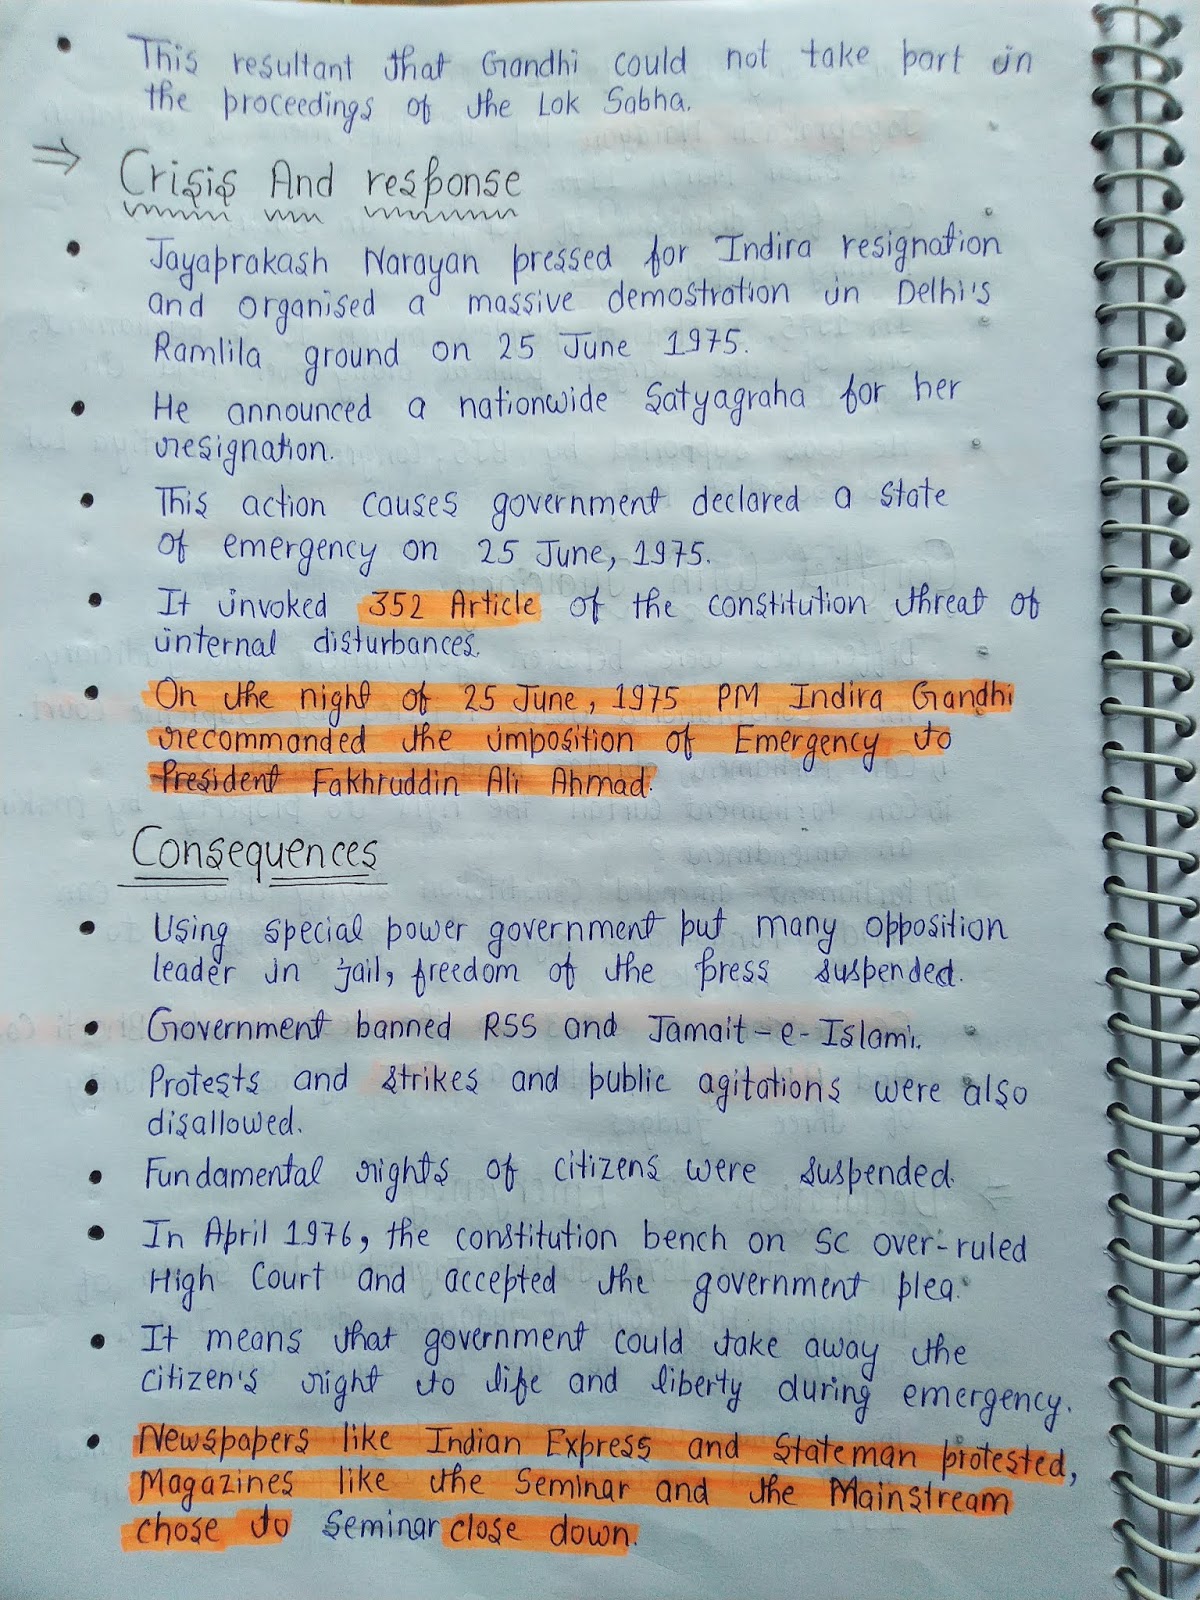 This resultant that Gandhi could not take part in
the proceedings of the Lok Sabha.
⇒ Crisis And response
Jayaprakash Narayan pressed for Indira resignation
and organised a massive demostration in Delhi's
Ramlila ground on 25 June 1975.
He announced a nationwide Satyagraha for her
resignation.
This action causes government declared a state
of emergency on 25 June, 1975.
It invoked 352 Article of the constitution threat of
internal disturbances.
On the night of 25 June, 1975 PM Indira Gandhi
recommanded the imposition of Emergency to
President Fakhruddin Ali Ahmad.
Consequences
Using special power government put many opposition
leader in jail, freedom of the press suspended.
Government banned RSS and Jamait-e-Islami.
Protests and strikes and public agitations were also
disallowed.
Fundamental rights of citizens were suspended.
In April 1976, the constitution bench on SC over-ruled
High Court and accepted the government plea.
It means that government could take away the
citizen's right to life and liberty during emergency.
Newspapers like Indian Express and Stateman protested,
Magazines like the Seminar and the Mainstream
chose to seminar close down.